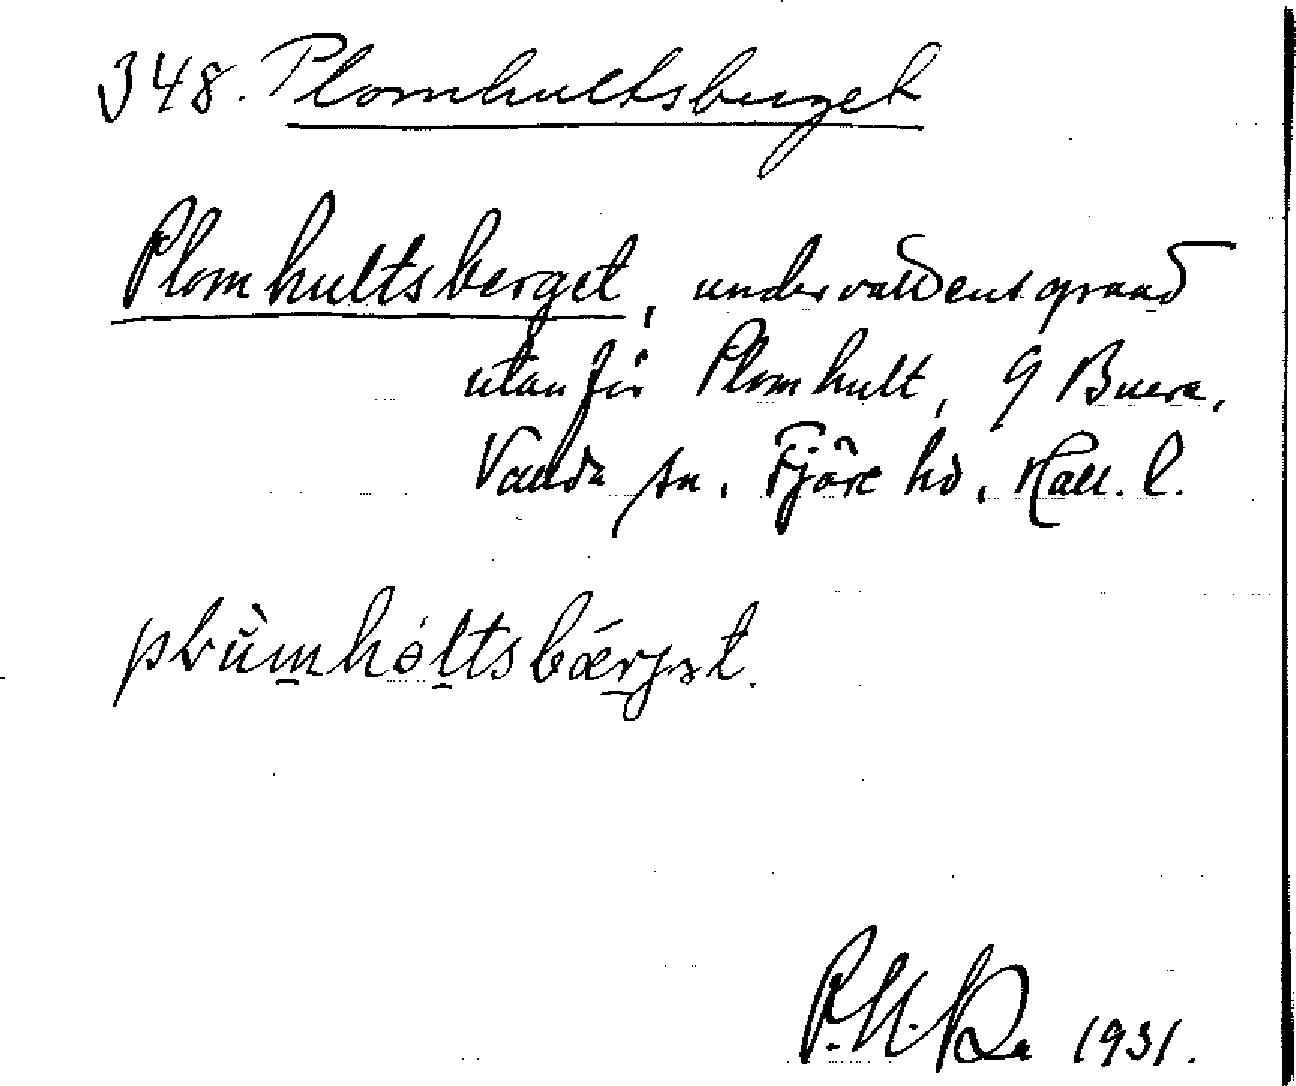 348. Plomhultsberget
Plomhultsberget, undervattensgrund
utanför Plomhult, 9 Buera,
Vanda sn. Fjäre hd, Hall. l.
1931.